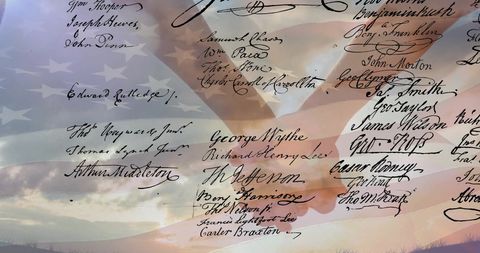 Wm Hooper
Joseph Hewes,
John Penn
Edward Rutledge Jr.
Thos Heyward Junr.
Thomas Lynch Junr.
Arthur Middleton
Samuel Chase
Wm Paca
Thos Stone
Charles Carroll of Carrollton
George Wythe
Richard Henry Lee
Th Jefferson
Benj Harrison
Thos Nelson jr.
Francis Lightfoot Lee
Carter Braxton
Benjamin Rush
Benj Franklin
John Morton
Geo Clymer
Jas. Smith
Geo. Taylor
James Wilson
Geo. Ross
Caesar Rodney
Geo Read
Tho M:Kean